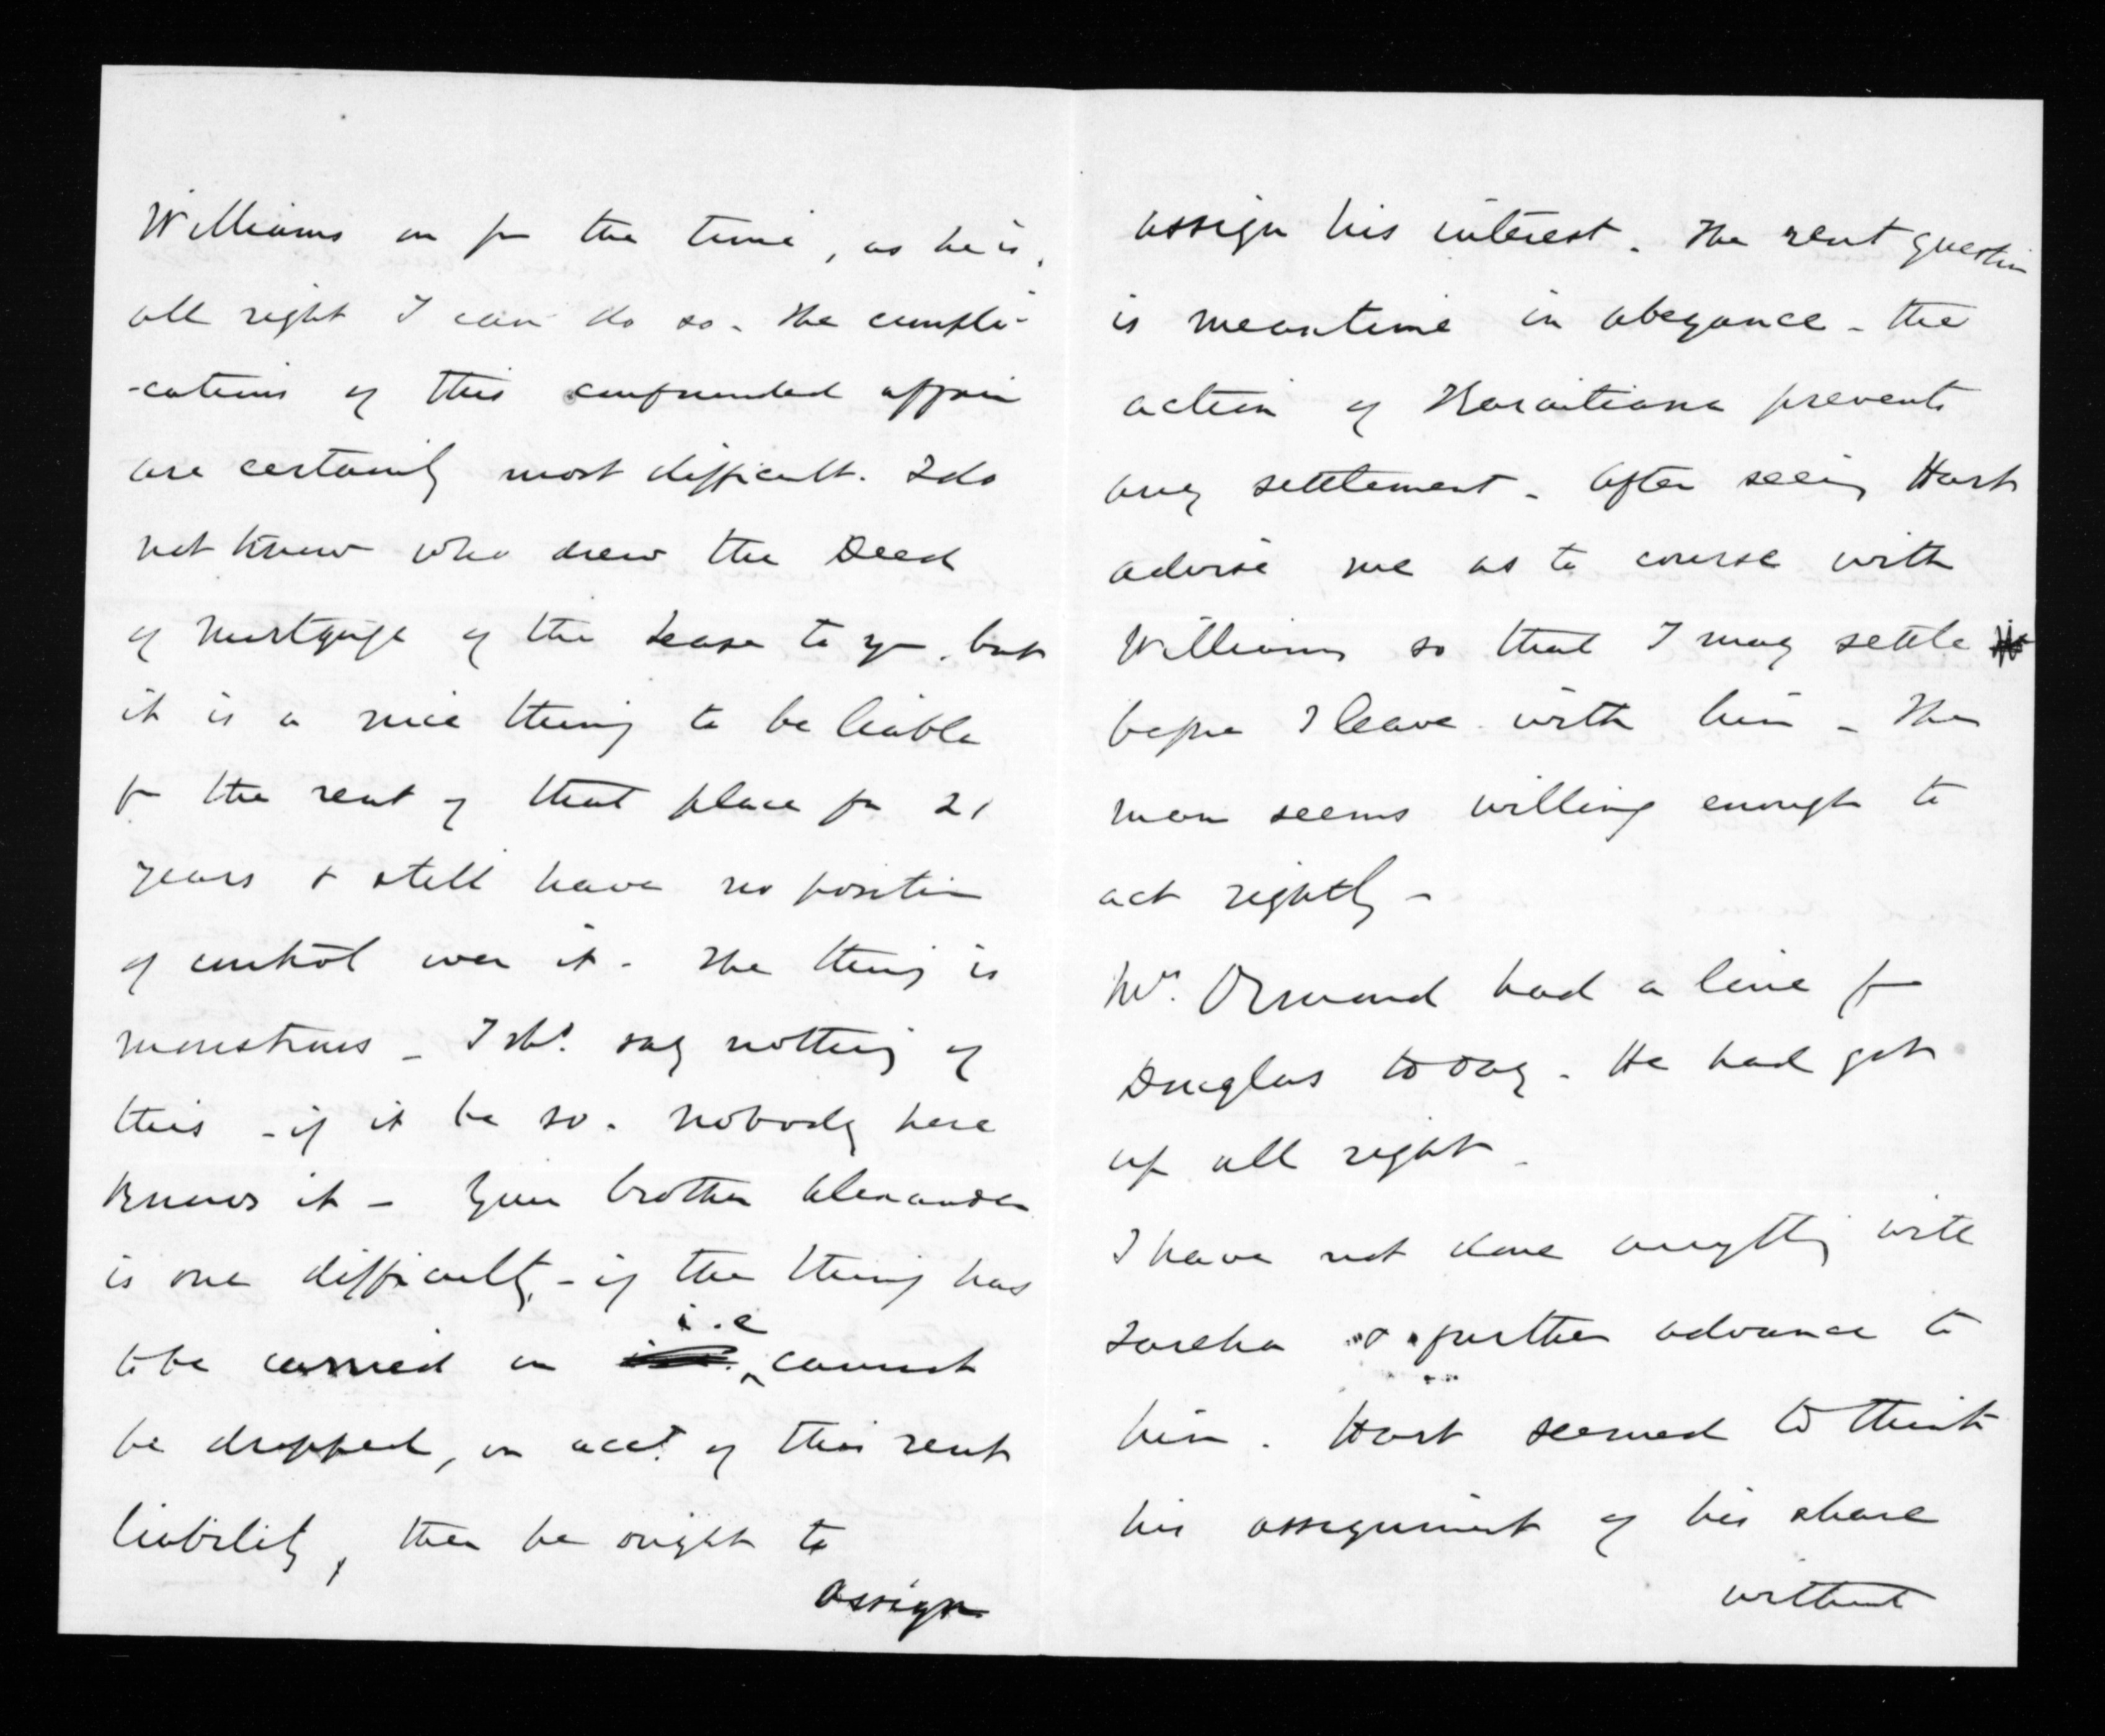 Williams on for the time, as he is,
all right I can do so. The compli-
-cations of this confounded affair
are certainly most difficult. I do
not know who drew the Deed
of mortgage of the Lease to you, but
it is a nice thing to be liable
for the rent of that place for 21
years & still have no position
of control over it. The thing is
monstrous - I shd. say nothing of
this - if it be so. Nobody here
knows it - Your brother Alexander
is one difficulty, - if the thing has
i.e
to be carried on cannot
be dropped, on acct. of this rent
liability, then he ought to
assign
assign his interest. The rent question
is meantime in abeyance - the
action of Karaitiana prevents
any settlement. After seeing Hart
advise me as to course with
Williams so that I may settle
before I leave with him - The
man seems willing enough to
act rightly -
Mr. Ormond had a line from
Douglas today. He had got
up all right.
I have not done anything with
Tareha or further advance to
him. Hart seemed to think
his assignment of his share
without